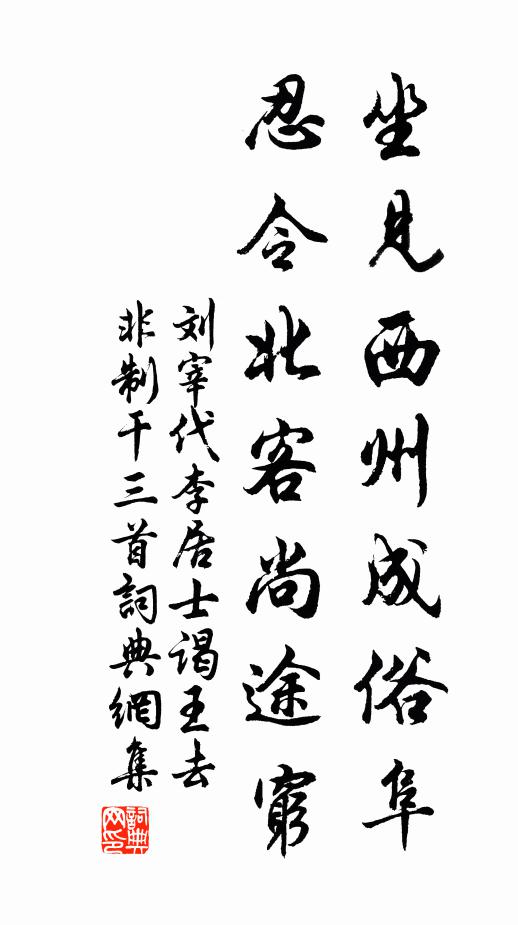 坐見西州成俗阜
忍令北客尚途窮
刘宰代李居士謁王去
非制干三首詞典網集
詞典网印